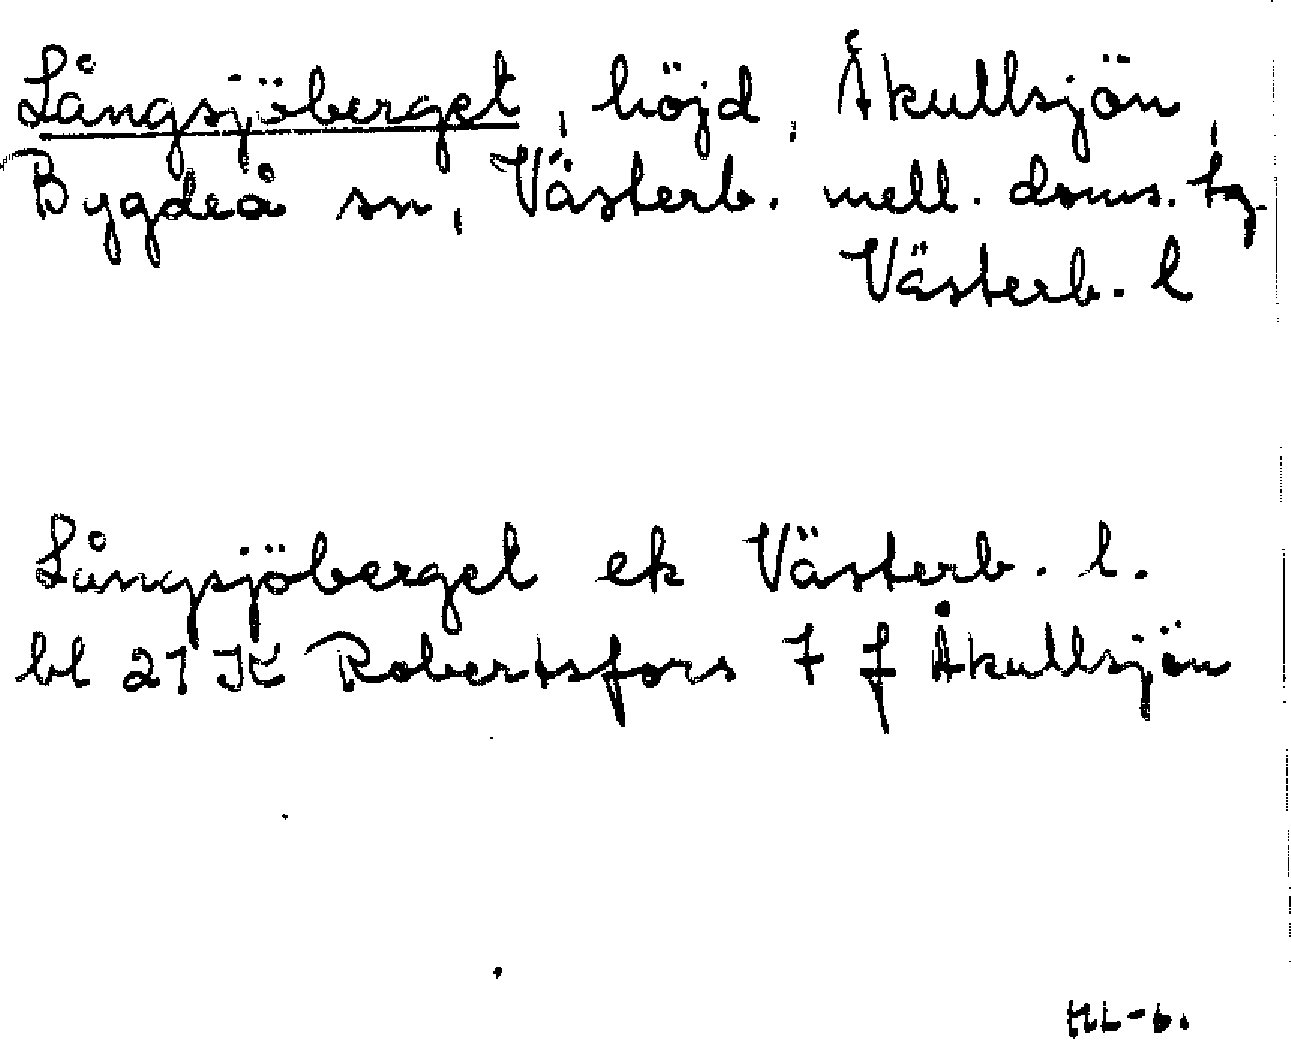 Långsjöberget, höjd, Åkullsjön,
Bygdeå sn, Västerb. mell. doms. tg.
Västerb. l
Långsjöberget ek Västerb. l.
bl 21 JK Robertsfors 7 f Åkullsjön